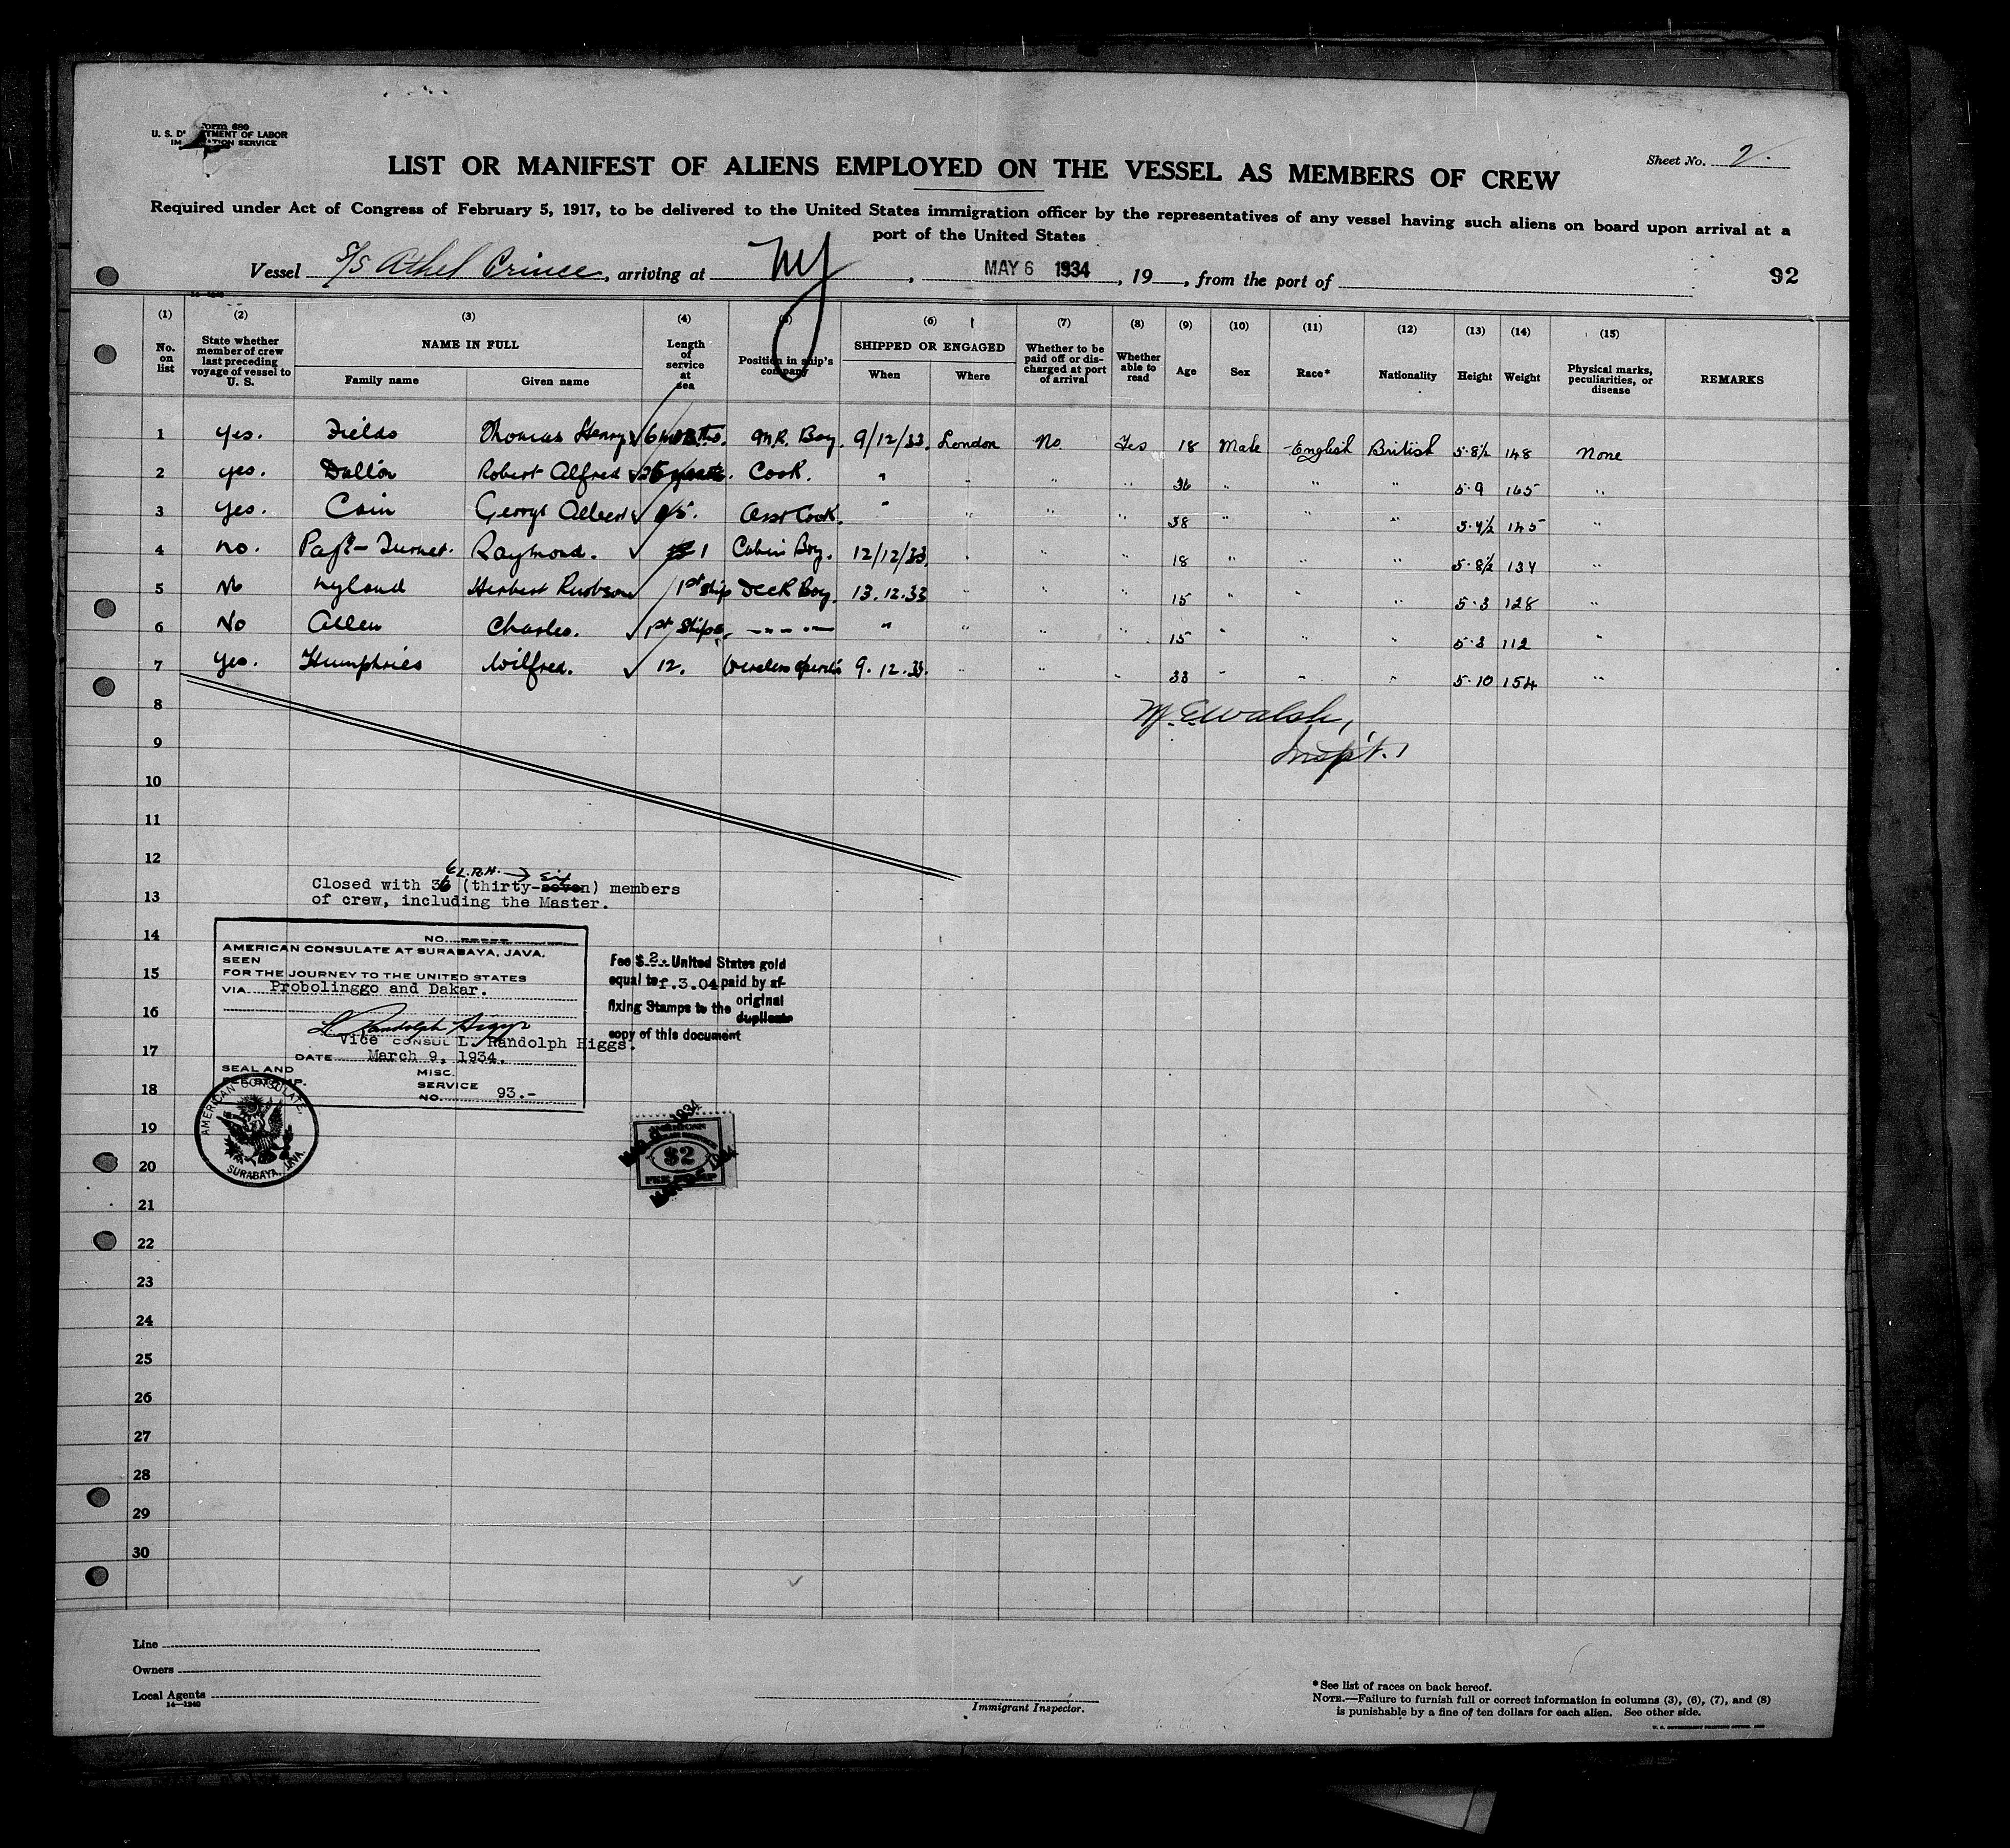 Form 680
U. S. DEPARTMENT OF LABOR
IMMIGRATION SERVICE
Sheet No. 2.
LIST OR MANIFEST OF ALIENS EMPLOYED ON THE VESSEL AS MEMBERS OF CREW
Required under Act of Congress of February 5, 1917, to be delivered to the United States immigration officer by the representatives of any vessel having such aliens on board upon arrival at a
port of the United States
Vessel S/S Athel Prince, arriving at NY, MAY 6 1934, 19 , from the port of
92
(1) (2) (3) (4) (5) (6) (7) (8) (9) (10) (11) (12) (13) (14) (15)
No. on list
State whether member of crew last preceding voyage of vessel to U. S.
NAME IN FULL
Family name Given name
Length of service at sea
Position in ship's company
SHIPPED OR ENGAGED
When Where
Whether to be paid off or discharged at port of arrival
Whether able to read
Age Sex Race* Nationality Height Weight
Physical marks, peculiarities, or disease
REMARKS
1 Yes. Fields Thomas Henry 6 months. M.R. Boy. 9/12/33. London No. Yes 18 Male English British 5·8½ 148 None
2 yes. Robert Alfred Cook. " " " " 36 " " " 5·9 165 "
3 Yes. Cain George Albert 15. Asst Cook. " " " " 38 " " " 145 "
4 no. Raymond. 1 Cabin Boy. 12/12/33. " " " 18 " " " 5·8½ 134 "
5 No Nyland Herbert 1st ship Deck Boy. 13.12.33 " " " 15 " " " 5·3 128 "
6 No Allen Charles. 1st Ship. — " — " — " " " " 15 " " " 5·3 112 "
7 Yes. Humphries Wilfred. 12. Wireless Operator 9.12.33. " " " 33 " " " 5·10 154 "
8
M. E. Walsh,
9
Insp't.
10
11
12
6 L.R.H. → six
Closed with 36 (thirty-seven) members
13
of crew, including the Master.
14
NO.
AMERICAN CONSULATE AT SURABAYA, JAVA.
SEEN
15
FOR THE JOURNEY TO THE UNITED STATES
VIA Probolinggo and Dakar.
Fee $ 2. United States gold
equal to f. 3.04 paid by af-
fixing Stamps to the original
duplicate
copy of this document
16
L. Randolph Higgs
Vice CONSUL L. Randolph Higgs.
17
DATE March 9, 1934.
SEAL AND
FEE STAMP.
MISC.
SERVICE
NO. 93.-
18
AMERICAN CONSULATE,
SURABAYA, JAVA.
19
1934
AMERICAN
$2
FEE STAMP
20
21
22
23
24
25
26
27
28
29
30
Line
Owners
Local Agents
14—1240
Immigrant Inspector.
*See list of races on back hereof.
NOTE.—Failure to furnish full or correct information in columns (3), (6), (7), and (8)
is punishable by a fine of ten dollars for each alien. See other side.